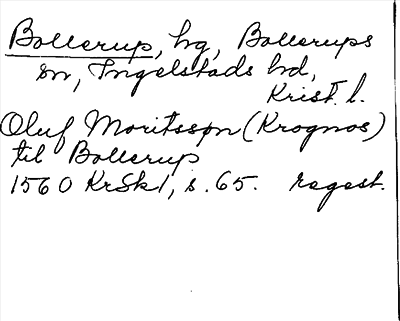 Bollerup, hg, Bollerups
sn, Ingelstads hd,
Krist. l.
Oluf Moritsson (Krognos)
til Bollerup
1560 KrSkl, s. 65. regest.